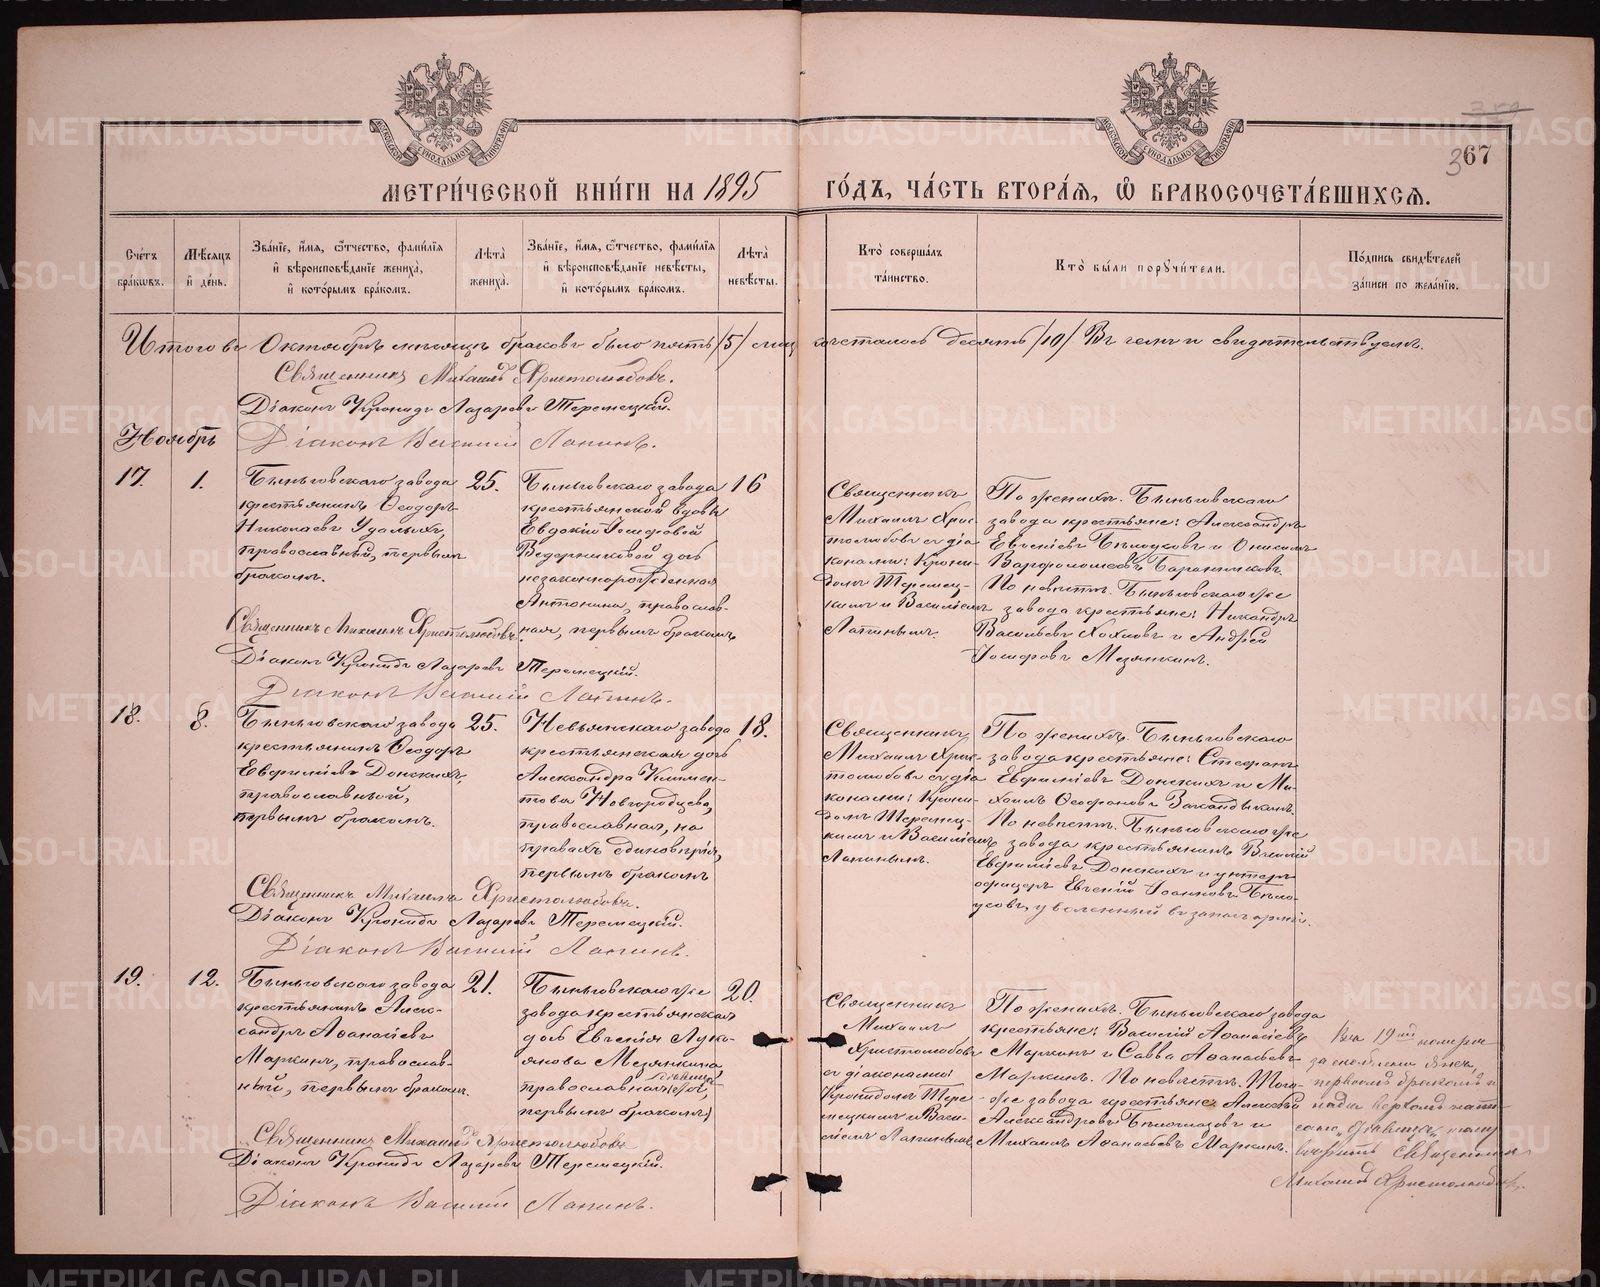 МЕТРИ́ЧЕСКОЙ КНИ́ГИ НА 1895 ГО́ДЪ, ЧА́СТЬ ВТОРА́Я, Ѡ БРАКОСОЧЕТА́ВШИХСЯ.
367
Сче́тъ бра́кѡвъ.
Мѣ́сяцъ и де́нь.
Зва́нїе, и́мя, ѻ́тчество, фами́лїя и вѣроисповѣ́данїе жениха̀, и кото́рымъ бра́комъ.
Лѣта̀ жениха̀.
Зва́нїе, и́мя, ѻ́тчество, фами́лїя и вѣроисповѣ́данїе невѣ́сты, и кото́рымъ бра́комъ.
Лѣта̀ невѣ́сты.
Кто̀ соверша́лъ та́инство.
Кто̀ бы́ли порꙋчи́тели.
По́дпись свидѣ́телей за́писи по жела́нїю.
Итого въ Октябрѣ мѣсяцѣ браковъ было пять /5/ лицъ сочеталось десять /10/ Въ чемъ и свидѣтельствуемъ.
Священникъ Михаилъ Христолюбовъ.
Діаконъ Кронидъ Лазаревъ Теремецкій.
Ноябрь
Діаконъ Василій Лапинъ.
17.
1.
Быньговскаго завода
крестьянинъ Ѳеодоръ
Николаевъ Удалыхъ,
православный, первымъ
бракомъ.
25.
Быньговскаго завода
крестьянской вдовы
Евдокіи Іосифовой
Ведерниковой дочь
незаконнорожденная
Антонина, православ-
ная, первымъ бракомъ
16
Священникъ
Михаилъ Хрис-
толюбовъ съ діа
конами: Крони-
домъ Теремец-
кимъ и Василіемъ
Лапинымъ.
По женихѣ. Быньговскаго
завода крестьяне: Александръ
Евгеніевъ Бѣлоусовъ и Онисимъ
Варѳоломеевъ Баранниковъ.
По невѣстѣ. Быньговскаго же
завода крестьяне: Никандръ
Васильевъ Хохловъ и Андрей
Іосифовъ Мезянкинъ.
Священникъ Михаилъ Христолюбовъ.
Діаконъ Кронидъ Лазаревъ Теремецкій.
Діаконъ Василій Лапинъ.
18.
8.
Быньговскаго завода
крестьянинъ Ѳеодоръ
Евфиміевъ Донскихъ,
православный,
первымъ бракомъ.
25.
Невьянскаго завода
крестьянская дочь
Александра Климен-
това Новгородцева,
православная, на
правахъ единовѣрія,
первымъ бракомъ
18.
Священникъ
Михаилъ Хрис-
толюбовъ съ діа
конами: Крони-
домъ Теремец-
кимъ и Василіемъ
Лапинымъ.
По женихѣ. Быньговскаго
завода крестьяне: Стефанъ
Евфиміевъ Донскихъ и Ми-
хаилъ Ѳеофановъ
По невѣстѣ. Быньговскаго же
завода крестьянинъ Василій
Евфиміевъ Донскихъ и унтеръ
офицеръ Евгеній Іоанновъ Бѣло-
усовъ, уволенный въ запасъ арміи.
Священникъ Михаилъ Христолюбовъ.
Діаконъ Кронидъ Лазаревъ Теремецкій.
Діаконъ Василій Лапинъ.
19.
12.
Быньговскаго завода
крестьянинъ Алек-
сандръ Аѳанасіевъ
Маркинъ, православ-
ный, первымъ бракомъ.
21.
Быньговскаго же
завода крестьянская
дочь Евгенія Луки-
янова Мезянкина
православная,
первымъ бракомъ
20.
Священникъ
Михаилъ
Христолюбовъ
съ діаконами:
Кронидомъ Тере-
мецкимъ и Васи-
ліемъ Лапинымъ
По женихѣ. Быньговскаго завода
крестьяне: Василій Аѳанасіевъ
Маркинъ и Савва Аѳанасіевъ
Маркинъ. По невѣстѣ. Того-
же завода крестьяне Алексѣй
Александровъ Бѣлоглазовъ и
Михаилъ Аѳанасьевъ Маркинъ.
19
первымъ бракомъ и
Священникъ
Михаилъ Христолюбовъ.
Священникъ Михаилъ Христолюбовъ
Діаконъ Кронидъ Лазаревъ Теремецкій.
Діаконъ Василій Лапинъ.
METRIKI.GASO-URAL.RU